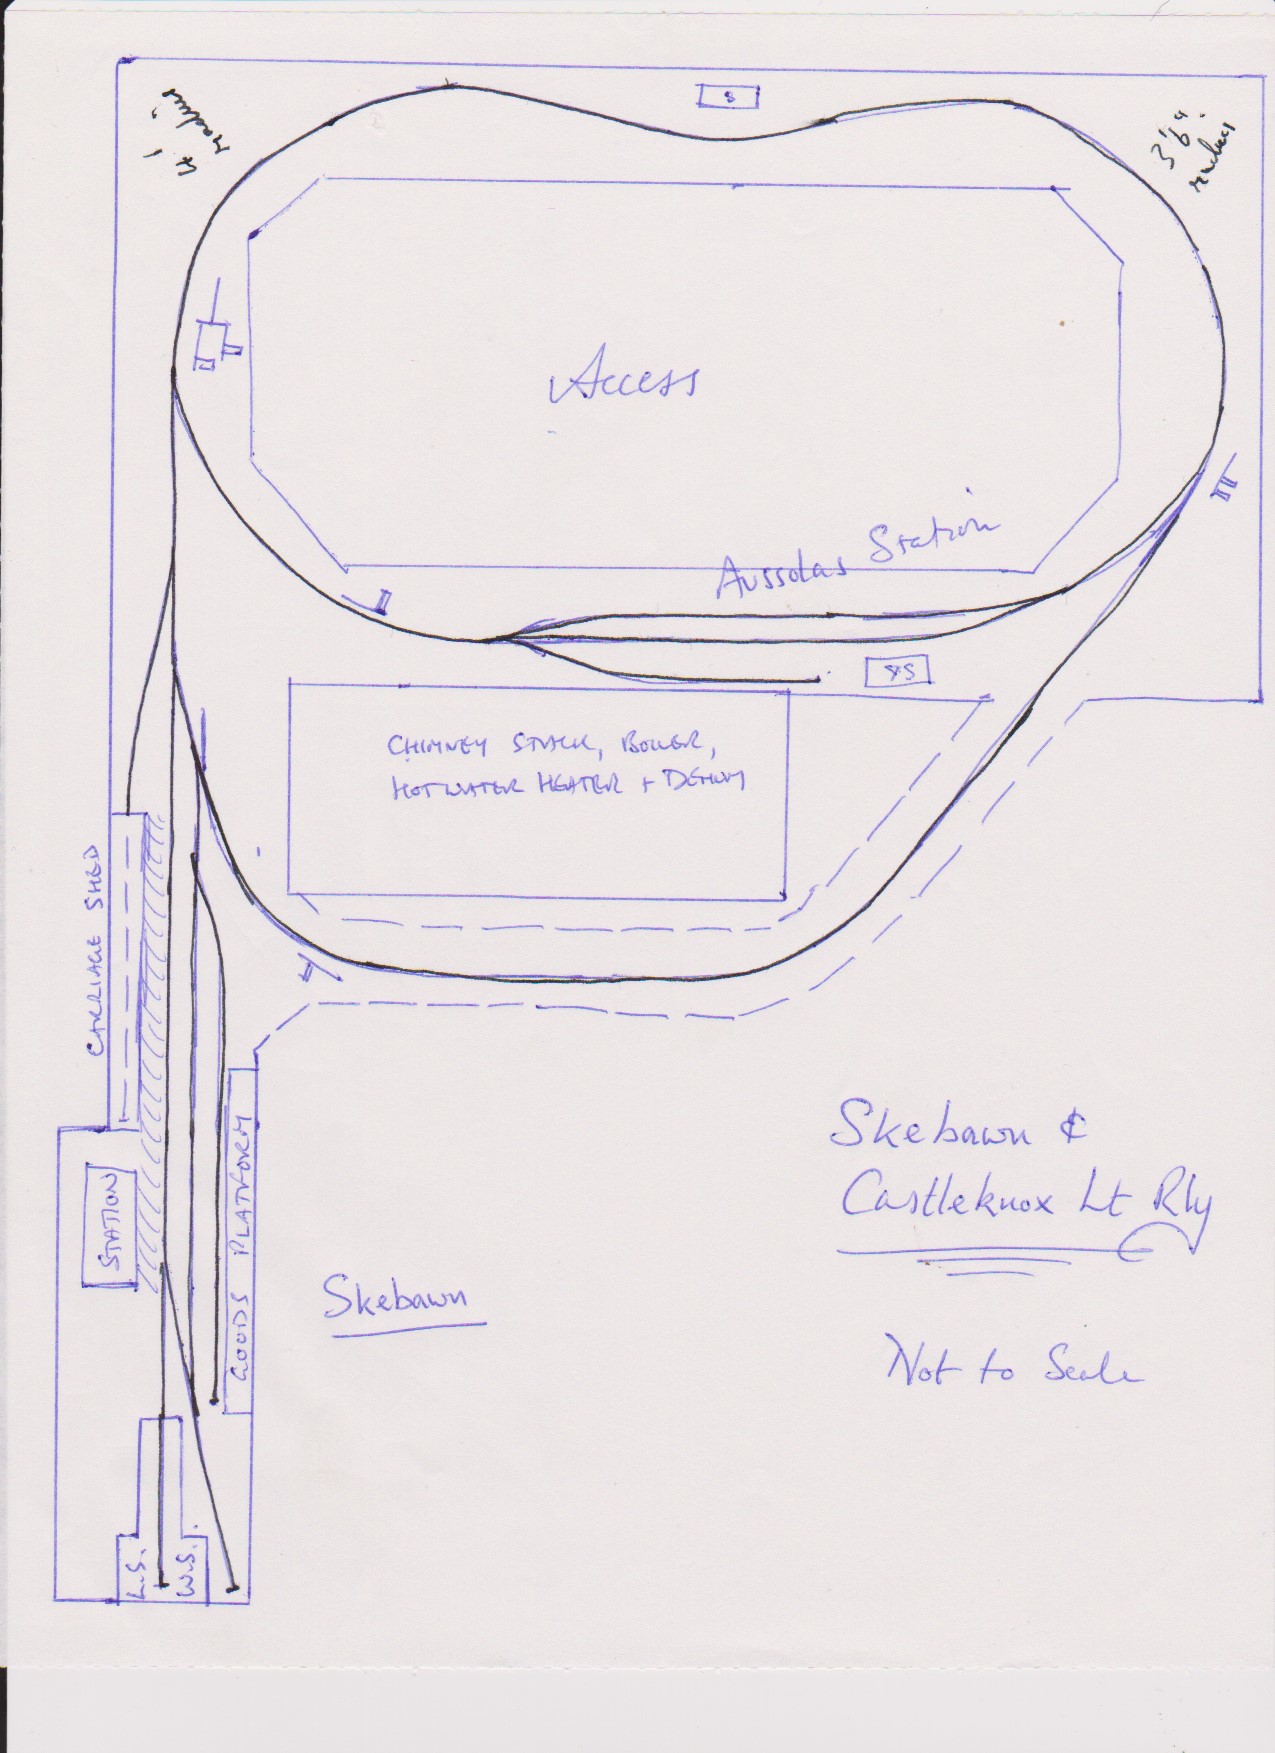 4' radius
3'6"
radius
S
Access
Aussolas Station
SS
CHIMNEY STACK, BOILER,
HOT WATER HEATER +
CARRIAGE SHED
STATION
GOODS PLATFORM
Skebawn &
Castleknox Lt Rly
Skebawn
Not to Scale
L.S.
W.S.